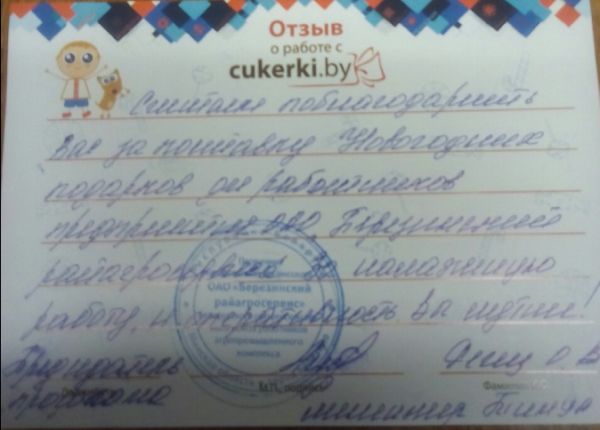 Отзыв
о работе с
cukerki.by
поблагодарить
Вас за поставку Новогодних
подарков для работников
предприятия ОАО Березинский
райагросервис за налаженную
работу и оперативность
ОАО «Березинский
райагросервис»
агропромышленного
комплекса
Председатель
профкома
М.П., подпись
Фамилия